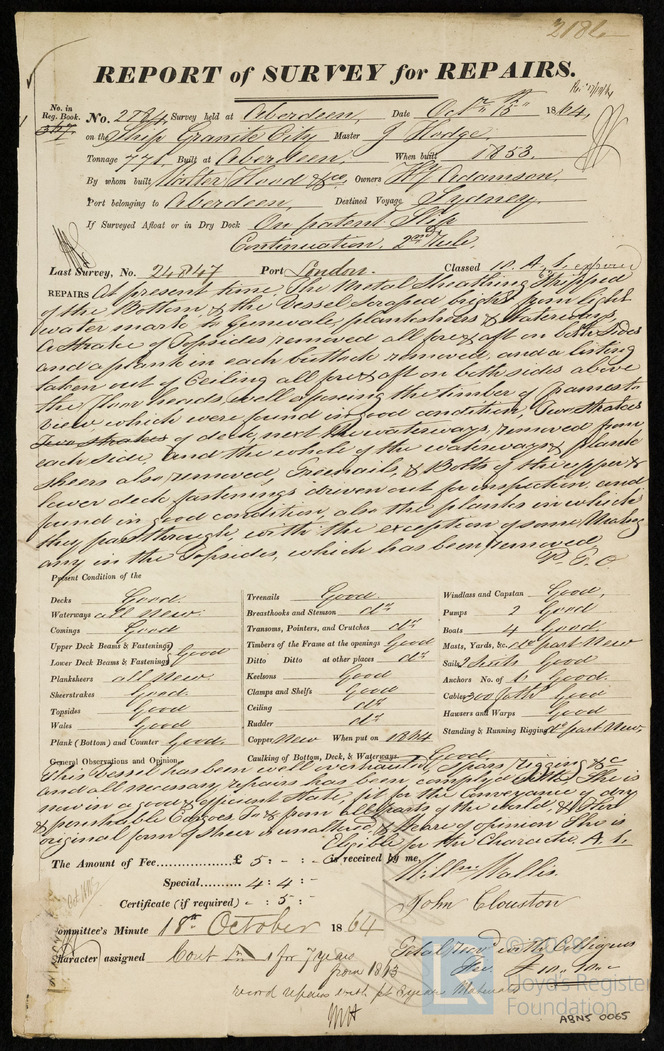 2186
REPORT of SURVEY for REPAIRS.
No. in Reg. Book.
No. 2784 Survey held at Aberdeen, Date Octr 15th 1864,
on the Ship Granite City Master J Hodge.
Tonnage 771. Built at Aberdeen. When built 1853.
By whom built Walter Hood & Co. Owners Hy Adamson.
Port belonging to Aberdeen. Destined Voyage Sydney.
If Surveyed Afloat or in Dry Dock On patent Slip
Continuation. 2nd Rule
Last Survey, No. 24847 Port London. Classed 10. A. 1. expired
REPAIRS At present time. The Metal Sheathing Stripped
of the Bottom & the Vessel Scraped bright from light
water mark to Gunwale, planksheers & Waterways.
A Strake of Topsides removed all fore & aft on both Sides
and a plank in each buttock removed, and a listing
taken out of Ceiling all fore & aft on both sides above
the floor heads, well opening the timber of frames to
view which were found in good condition, Two Strakes
Two strakes of deck next the waterways, removed from
each side, and the whole of the waterways & plank
sheers also removed Treenails, & Bolts of the upper &
lower deck fastenings driven out for inspection, and
found in good condition, also the planks in which
they pass through, with the exception of some
any in the Topsides, which has been removed
P. T. O.
Present Condition of the
Decks Good.
Waterways all New.
Comings Good
Upper Deck Beams & Fastenings
Lower Deck Beams & Fastenings Good
Planksheers all New
Sheerstrakes Good.
Topsides Good
Wales Good
Plank (Bottom) and Counter Good.
Treenails Good.
Breasthooks and Stemson do.
Transoms, Pointers, and Crutches do.
Timbers of the Frame at the openings Good
Ditto Ditto at other places do.
Keelsons Good
Clamps and Shelfs Good
Ceiling do.
Rudder do.
Copper New When put on 1864
Caulking of Bottom, Deck, & Waterways Good
Windlass and Capstan Good,
Pumps 2 Good
Boats 4 Good
Masts, Yards, &c. do. part New
Sails Good
Anchors No. of Good.
Cables 300 faths Good
Hawsers and Warps Good
Standing & Running Rigging do. part New.
General Observations and Opinion
This Vessel has been well overhauled, Spars, rigging &c
and all necessary repairs has been complyd with, She is
now in a good & efficient State, fit for the conveyance of dry
& perishable Cargoes to & from all parts of the world & Her
original form of Sheer is unaltered, & We are of opinion She is
Eligible for the Character A. 1.
The Amount of Fee £ 5: - : - is received by me,
Special 4: 4: -
Certificate (if required) - : 5: -
Willm Wallis.
John Clouston
Committee's Minute 18th October 1864
Character assigned Cont 1 for 7 years
from 1863
record repairs with pt
© 2020
LR
Lloyd's Register
Foundation
ABN5 0065